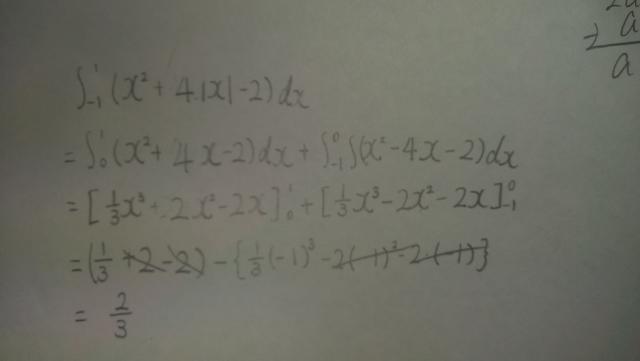 2a
2 a
a
∫₋₁¹ (x² + 4|x| - 2) dx
= ∫₀¹ (x² + 4x - 2) dx + ∫₋₁⁰ ∫(x² - 4x - 2) dx
= [⅓x³ + 2x² - 2x]₀¹ + [⅓x³ - 2x² - 2x]₋₁⁰
= (⅓ + 2 - 2) - {⅓(-1)³ - 2(-1)² - 2(-1)}
= 2/3